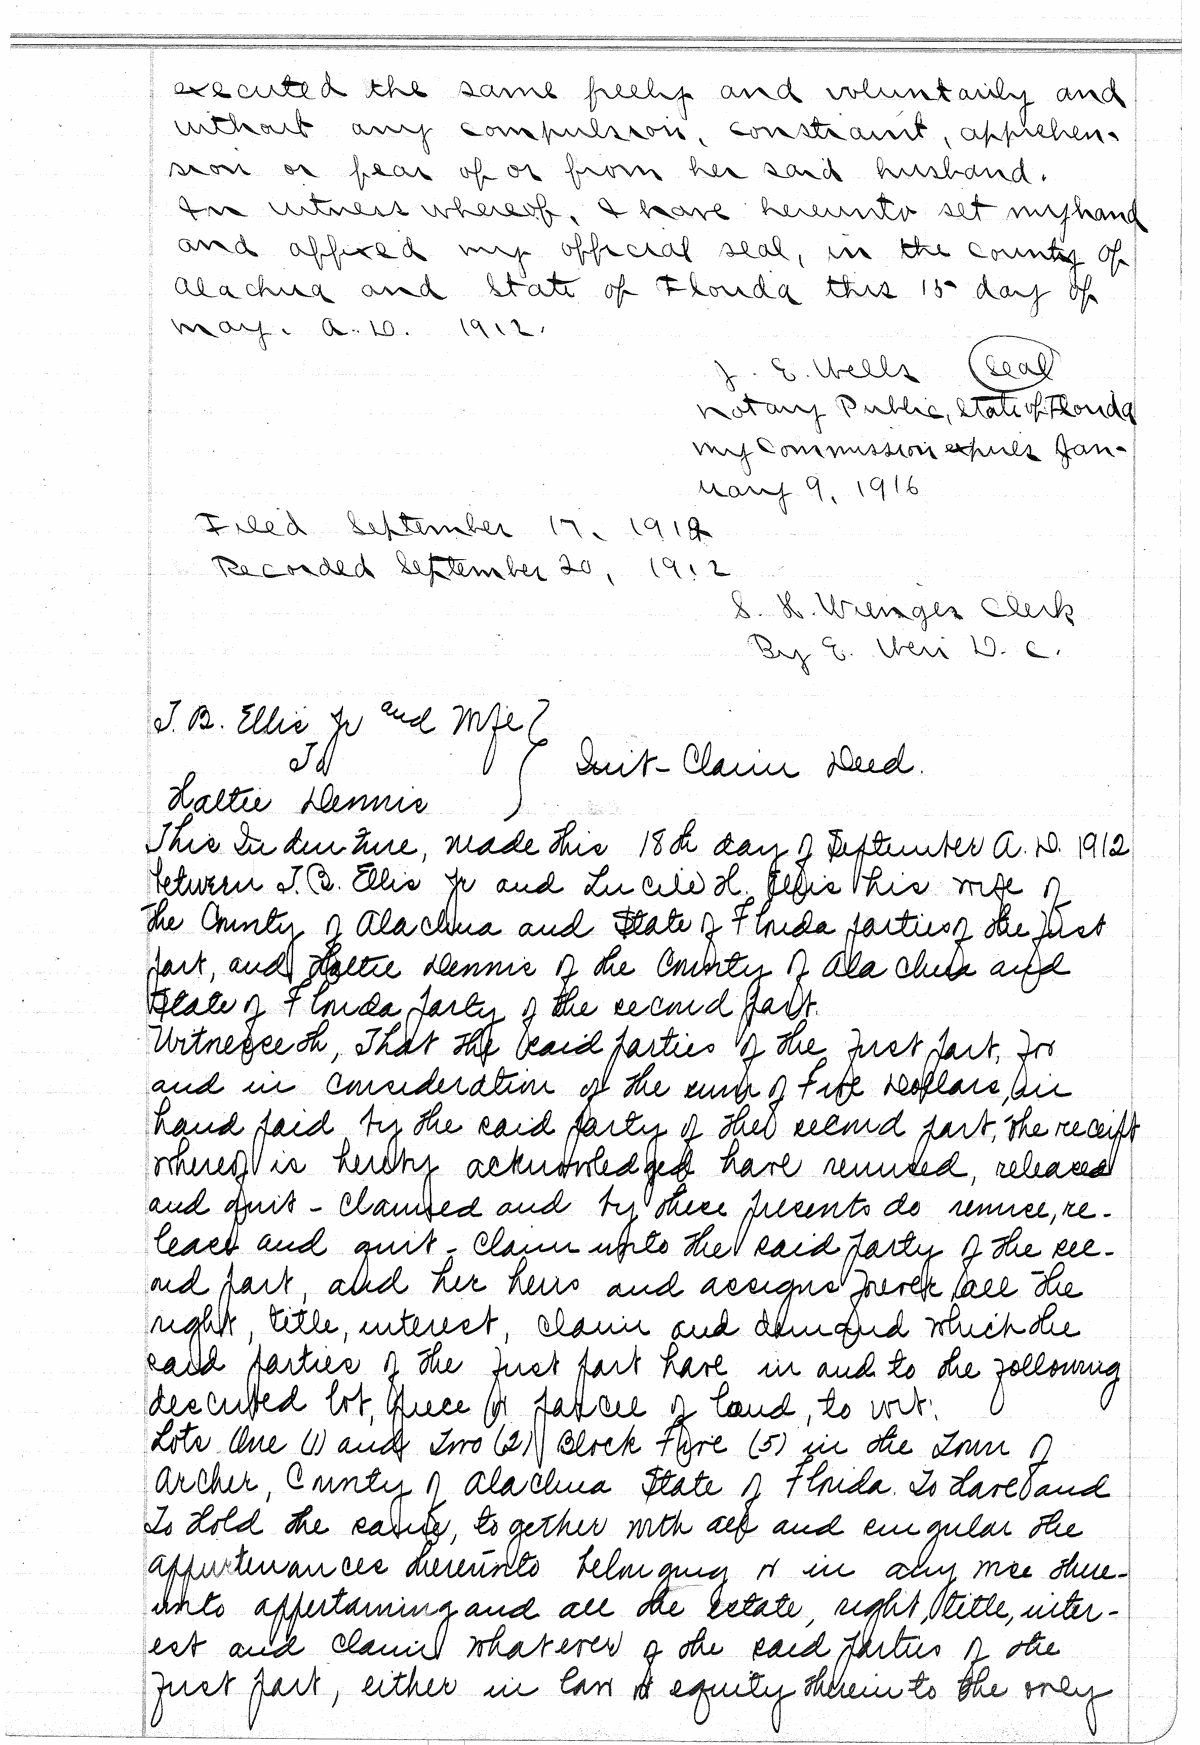 executed the same freely and voluntarily and
without any compulsion, constraint, apprehen-
sion or fear of or from her said husband.
In witness whereof, I have hereunto set my hand
and affixed my official seal, in the county of
Alachua and State of Florida this 15 day of
May. A.D. 1912.
J. E. Wells (Seal)
Notary Public, State of Florida
my commission expires Jan-
uary 9, 1916
Filed September 17, 1912
Recorded September 20, 1912
S. H. Wienges Clerk
By E. D. C.
J. B. Ellis Jr and Wife
To
Quit-Claim Deed.
Hattie Dennis
This Indenture, made this 18th day of September A.D. 1912
between J. B. Ellis Jr and Lucile H. Ellis his wife of
the County of Alachua and State of Florida parties of the first
part, and Hattie Dennis of the County of Alachua and
State of Florida party of the second part.
Witnesseth, That the said parties of the first part, for
and in consideration of the sum of Five Dollars, in
hand paid by the said party of the second part, the receipt
whereof is hereby acknowledged have remised, released
and quit-claimed and by these presents do remise, re-
lease and quit-claim unto the said party of the sec-
ond part, and her heirs and assigns forever all the
right, title, interest, claim and demand which the
said parties of the first part have in and to the following
described lot, piece or parcel of land, to wit:
Lots One (1) and Two (2) Block Five (5) in the Town of
Archer, County of Alachua State of Florida. To Have and
To Hold the same, together with all and singular the
appurtenances thereunto belonging or in any wise there-
unto appertaining and all the estate, right, title, inter-
est and claim whatever of the said parties of the
first part, either in law or equity therein to the only